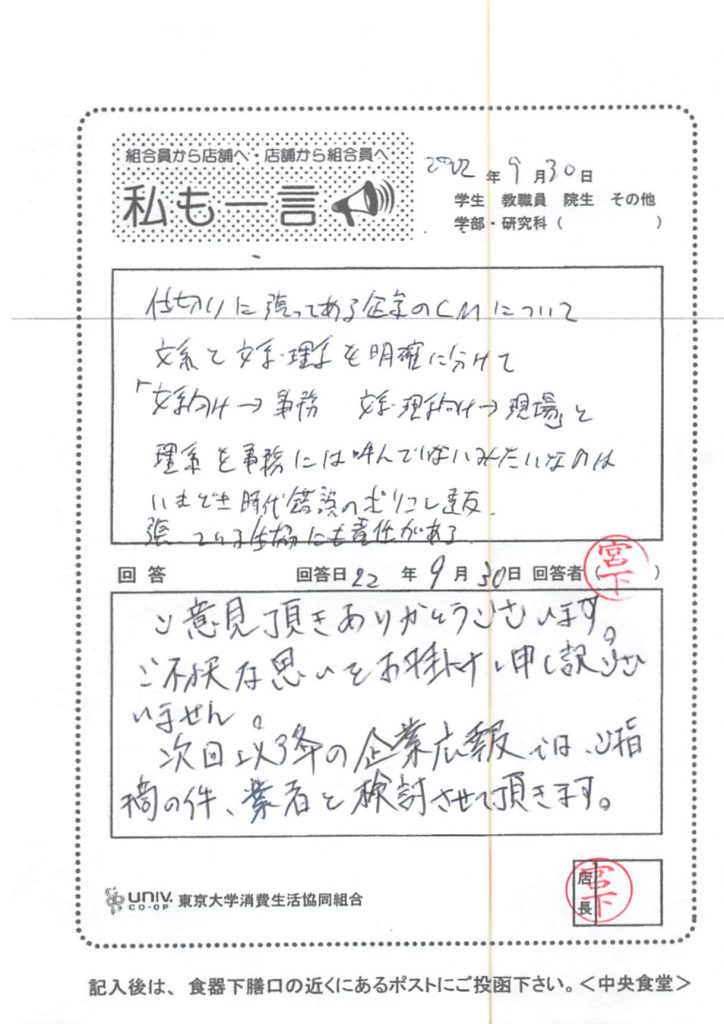 組合員から店舗へ・店舗から組合員へ
私も一言
2022年9月30日
学生 教職員 院生 その他
学部・研究科（　　　）
仕切りに張ってある企業のCMについて
文系と文系・理系を明確に分けて
「文系向け→事務 文系・理系向け→現場」と
理系を事務には呼んでいないみたいなのは
いまどき時代錯誤のポリコレ違反.
張っている生協にも責任がある
回答 回答日22年9月30日 回答者（宮下）
ご意見頂きありがとうございます。
ご不快な思いをお掛けし申し訳ござ
いません。
次回以降の企業広報では、ご指
摘の件、業者と検討させて頂きます。
UNIV. CO-OP 東京大学消費生活協同組合
店長 宮下
記入後は、食器下膳口の近くにあるポストにご投函下さい。＜中央食堂＞